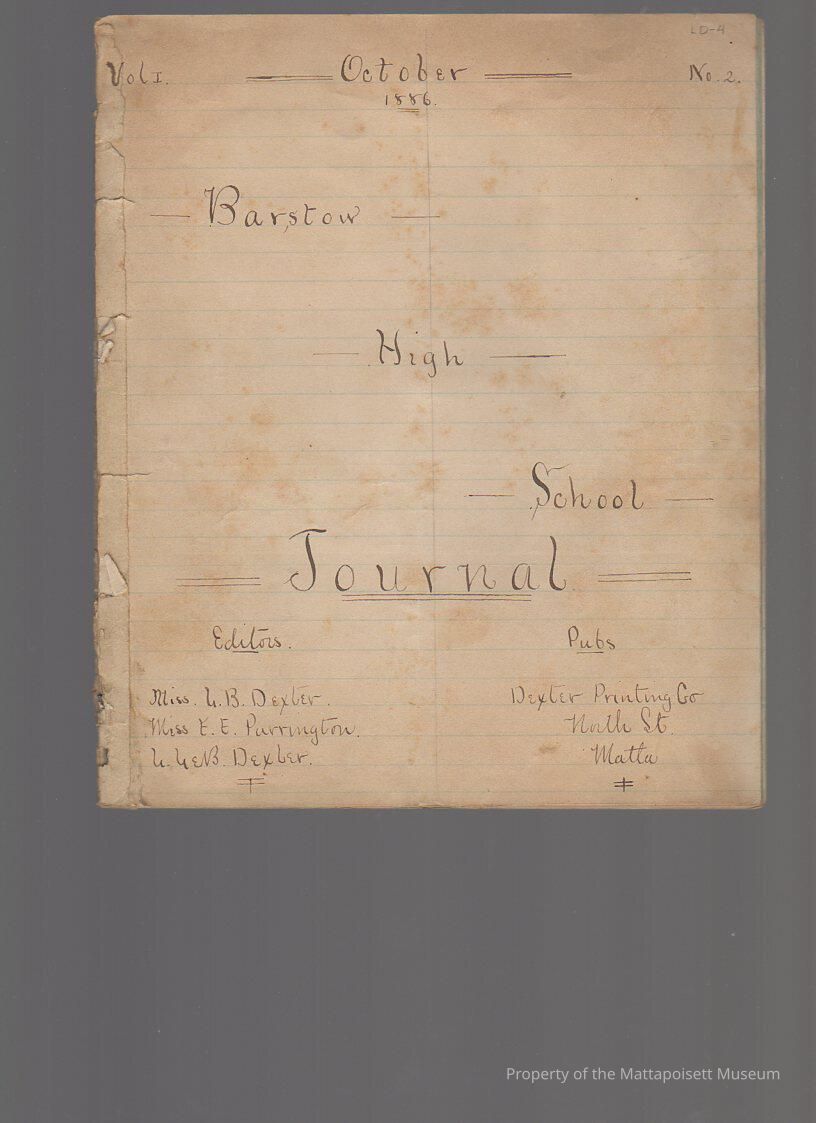 LD-4
Vol I. October No. 2.
1886.
Barstow
High
School
Journal
Editors. Pubs
Miss. L. B. Dexter. Dexter Printing Co
Miss E. E. Purrington. North St.
Dexter. Matta
Property of the Mattapoisett Museum